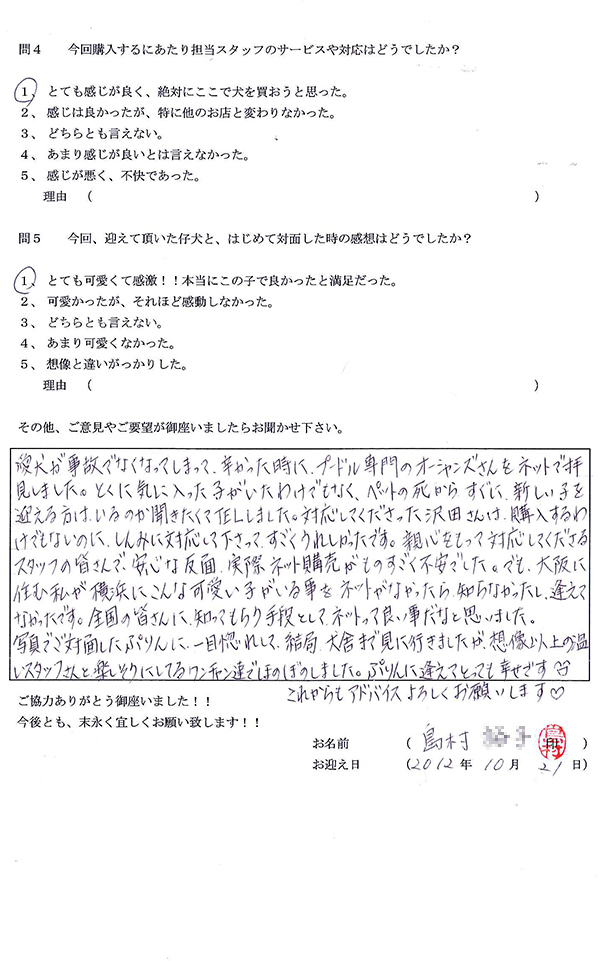 問４　今回購入するにあたり担当スタッフのサービスや対応はどうでしたか？
１、とても感じが良く、絶対にここで犬を買おうと思った。
２、感じは良かったが、特に他のお店と変わりなかった。
３、どちらとも言えない。
４、あまり感じが良いとは言えなかった。
５、感じが悪く、不快であった。
理由　（　　　）
問５　今回、迎えて頂いた仔犬と、はじめて対面した時の感想はどうでしたか？
１、とても可愛くて感激！！本当にこの子で良かったと満足だった。
２、可愛かったが、それほど感動しなかった。
３、どちらとも言えない。
４、あまり可愛くなかった。
５、想像と違いがっかりした。
理由　（　　　）
その他、ご意見やご要望が御座いましたらお聞かせ下さい。
愛犬が事故でなくなってしまって、辛かった時に、プードル専門のオーシャンズさんをネットで拝
見しました。とくに気に入った子がいたわけでもなく、ペットの死からすぐに、新しい子を
迎える方は、いるのか聞きたくてTELしました。対応してくださった沢田さんは、購入するわ
けでもないのに、しんみに対応して下さって、すごくうれしかったです。親心をもって対応してくださる
スタッフの皆さんで、安心な反面、実際ネット購売がものすごく不安でした。でも、大阪に
住む私が横浜にこんな可愛い子がいる事をネットがなかったら、知らなかったし、逢えて
なかったです。全国の皆さんに、知ってもらう手段として、ネットって良い事だなと思いました。
写真でご対面したぷりんに、一目惚れして、結局、犬舎まで見に行きましたが、想像以上の温
いスタッフさんと楽しそうにしてるワンチャン達でほのぼのしました。ぷりんに逢えてとっても幸せです
これからもアドバイスよろしくお願いします♡
ご協力ありがとう御座いました！！
今後とも、末永く宜しくお願い致します！！
お名前　（島村　　印）
お迎え日　（2012年 10月 21日）